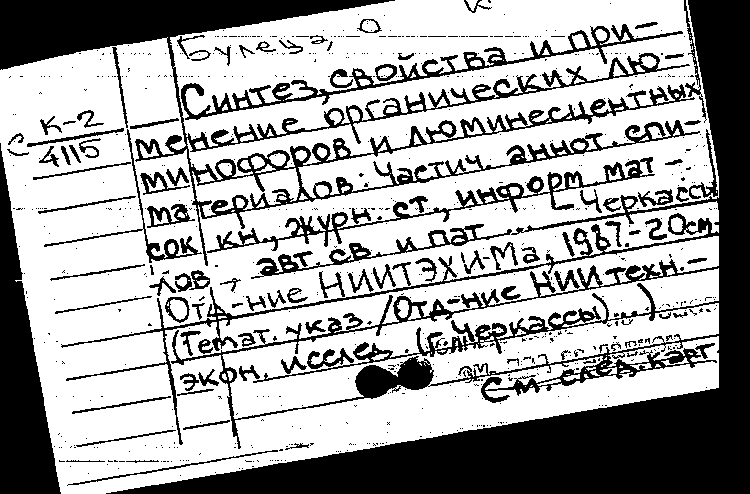 Булеца, О К
Синтез, свойства и при-
С К-2
4115
менение органических лю-
минофоров и люминесцентных
материалов: Частич. аннот. спи-
сок кн., журн. ст., информ мат-
лов, авт. св. и пат ... – Черкассы
Отд-ние НИИТЭХИМа, 1987.-20см.
(Темат. указ. / Отд-ние НИИ техн.-
экон. исслед. (г. Черкассы)...)
См. след. карт